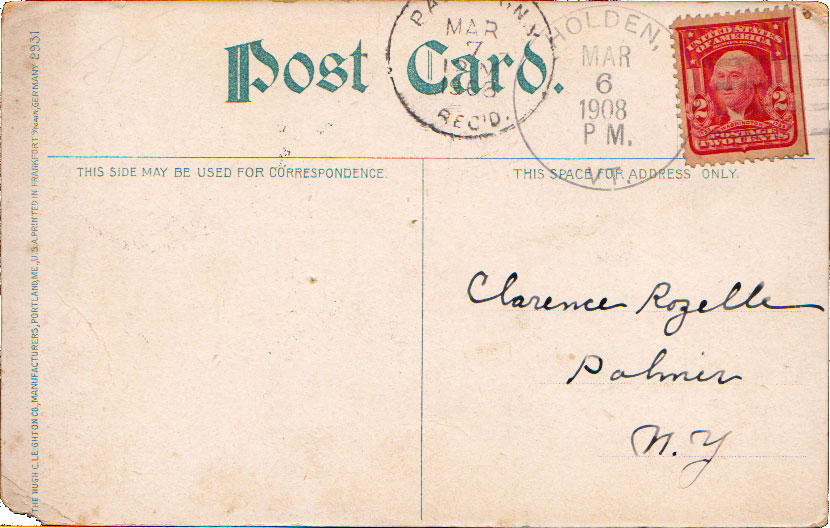 Post Card.
MAR
7
REC'D.
HOLDEN,
MAR
6
1908
P M.
VT.
UNITED STATES
OF AMERICA
2 2
POSTAGE
TWO CENTS
THIS SIDE MAY BE USED FOR CORRESPONDENCE.
THIS SPACE FOR ADDRESS ONLY.
Clarence Rozelle
Palmer
N.Y
THE HUGH C. LEIGHTON CO., MANUFACTURERS, PORTLAND, ME., U.S.A. PRINTED IN FRANKFORT GERMANY 2931